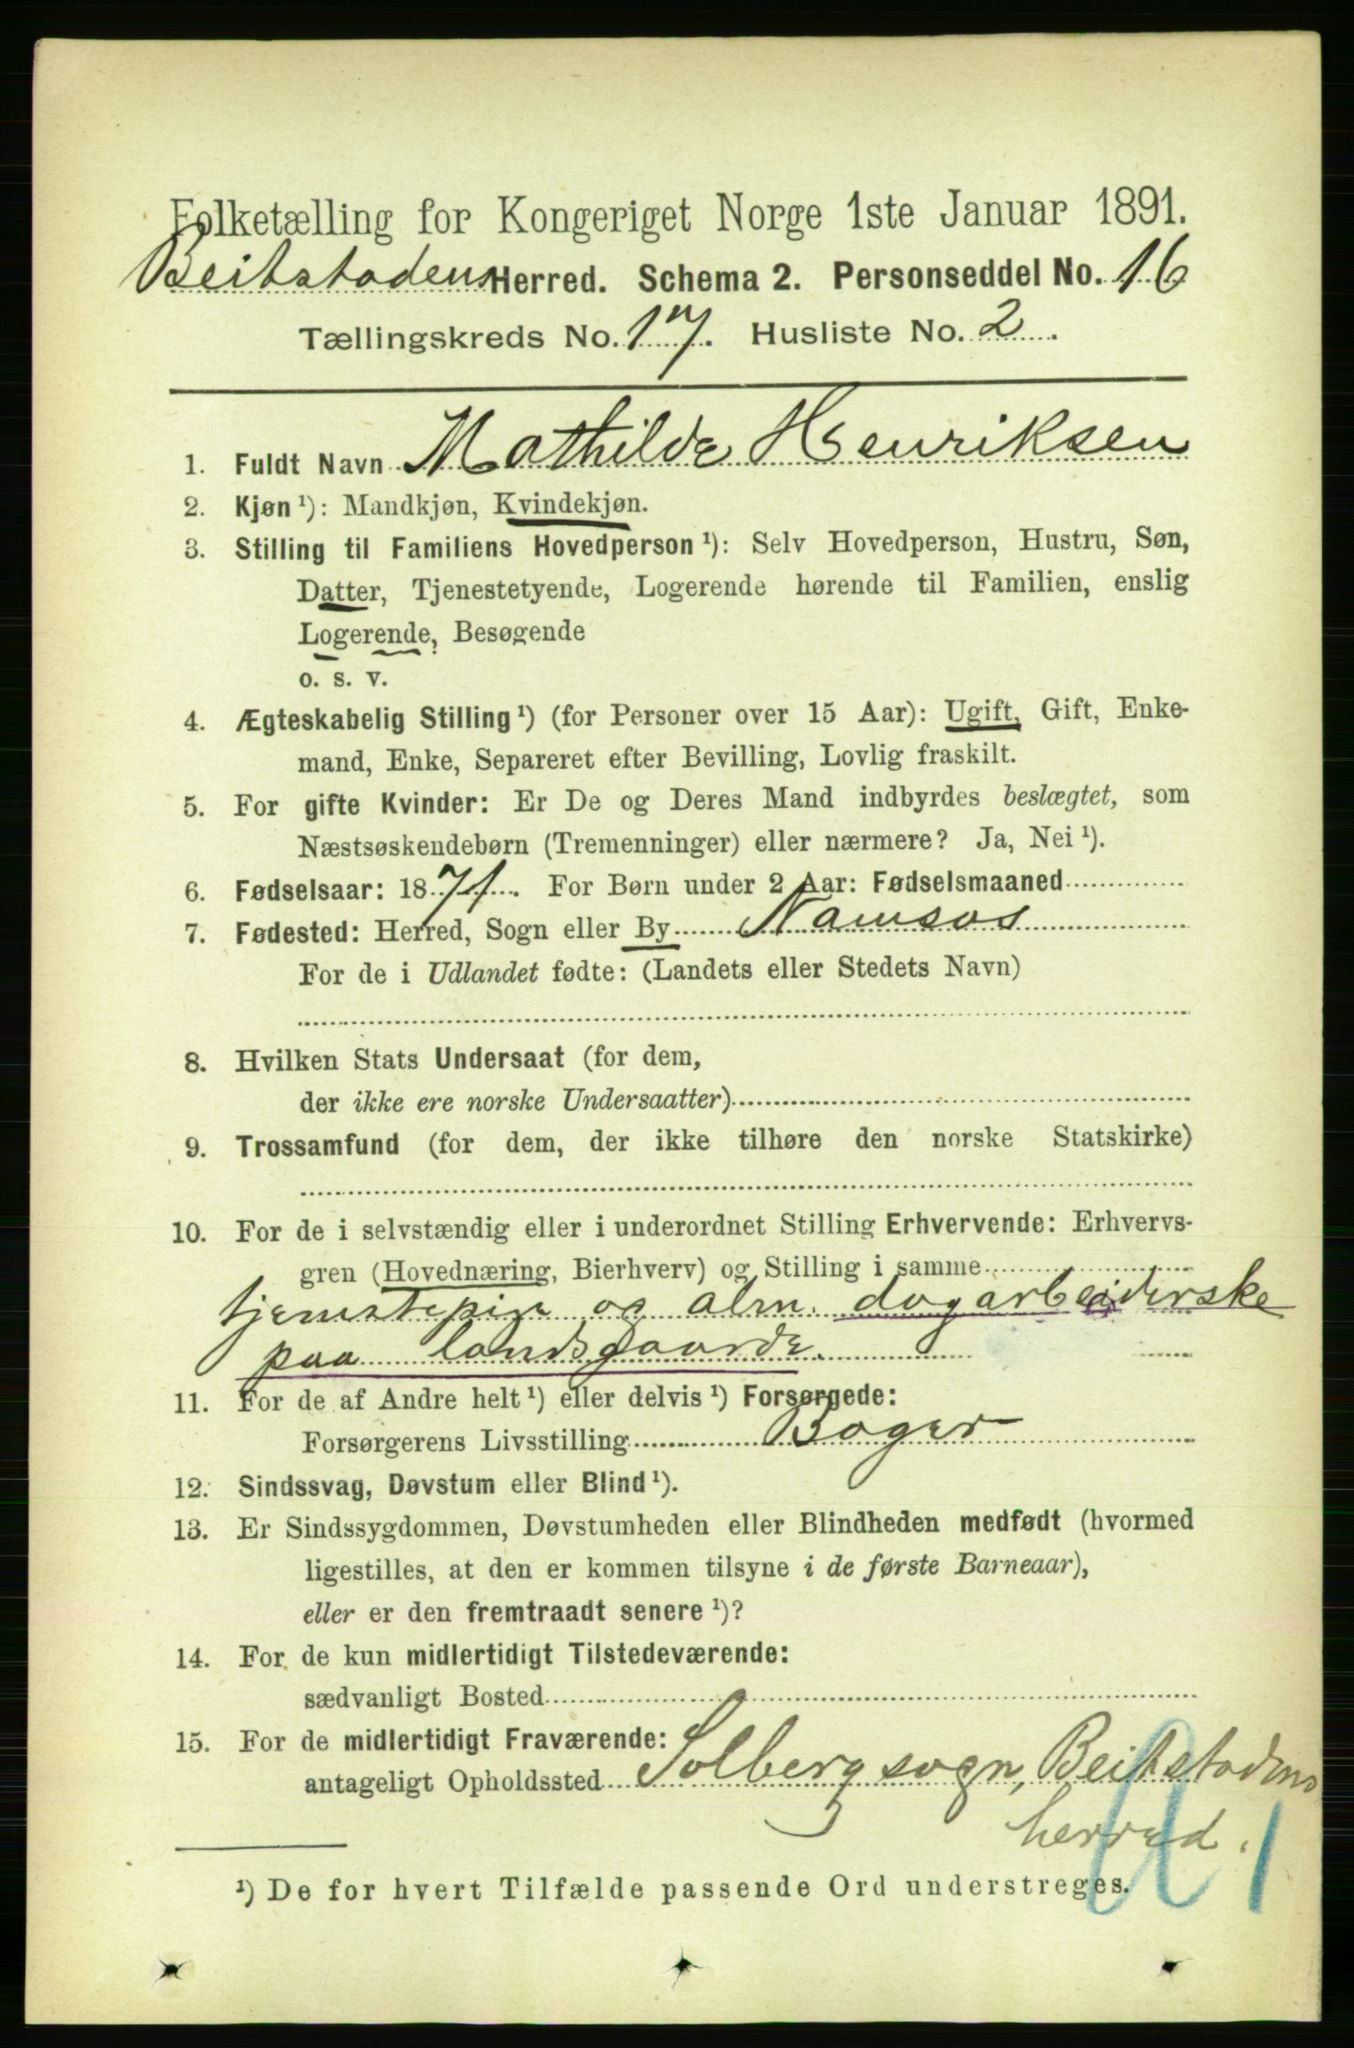 Folketælling for Kongeriget Norge 1ste Januar 1891.
Beitstadens Herred. Schema 2. Personseddel No. 16
Tællingskreds No. 17. Husliste No. 2.
1. Fuldt Navn Mathilde Henriksen
2. Kjøn ¹): Mandkjøn, Kvindekjøn.
3. Stilling til Familiens Hovedperson ¹): Selv Hovedperson, Hustru, Søn,
Datter, Tjenestetyende, Logerende hørende til Familien, enslig
Logerende, Besøgende
o. s. v.
4. Ægteskabelig Stilling ¹) (for Personer over 15 Aar): Ugift, Gift, Enke-
mand, Enke, Separeret efter Bevilling, Lovlig fraskilt.
5. For gifte Kvinder: Er De og Deres Mand indbyrdes beslægtet, som
Næstsøskendebørn (Tremenninger) eller nærmere? Ja, Nei ¹).
6. Fødselsaar: 1871. For Børn under 2 Aar: Fødselsmaaned
7. Fødested: Herred, Sogn eller By Namsos
For de i Udlandet fødte: (Landets eller Stedets Navn)
8. Hvilken Stats Undersaat (for dem,
der ikke ere norske Undersaatter)
9. Trossamfund (for dem, der ikke tilhøre den norske Statskirke)
10. For de i selvstændig eller i underordnet Stilling Erhvervende: Erhvervs-
gren (Hovednæring, Bierhverv) og Stilling i samme
tjenstepige og alm. dagarbeiderske
paa landsgaarde.
11. For de af Andre helt ¹) eller delvis ¹) Forsørgede:
Forsørgerens Livsstilling Bager
12. Sindssvag, Døvstum eller Blind ¹).
13. Er Sindssygdommen, Døvstumheden eller Blindheden medfødt (hvormed
ligestilles, at den er kommen tilsyne i de første Barneaar),
eller er den fremtraadt senere ¹)?
14. For de kun midlertidigt Tilstedeværende:
sædvanligt Bosted
15. For de midlertidigt Fraværende:
antageligt Opholdssted Solberg sogn, Beitstadens
herred.
¹) De for hvert Tilfælde passende Ord understreges.